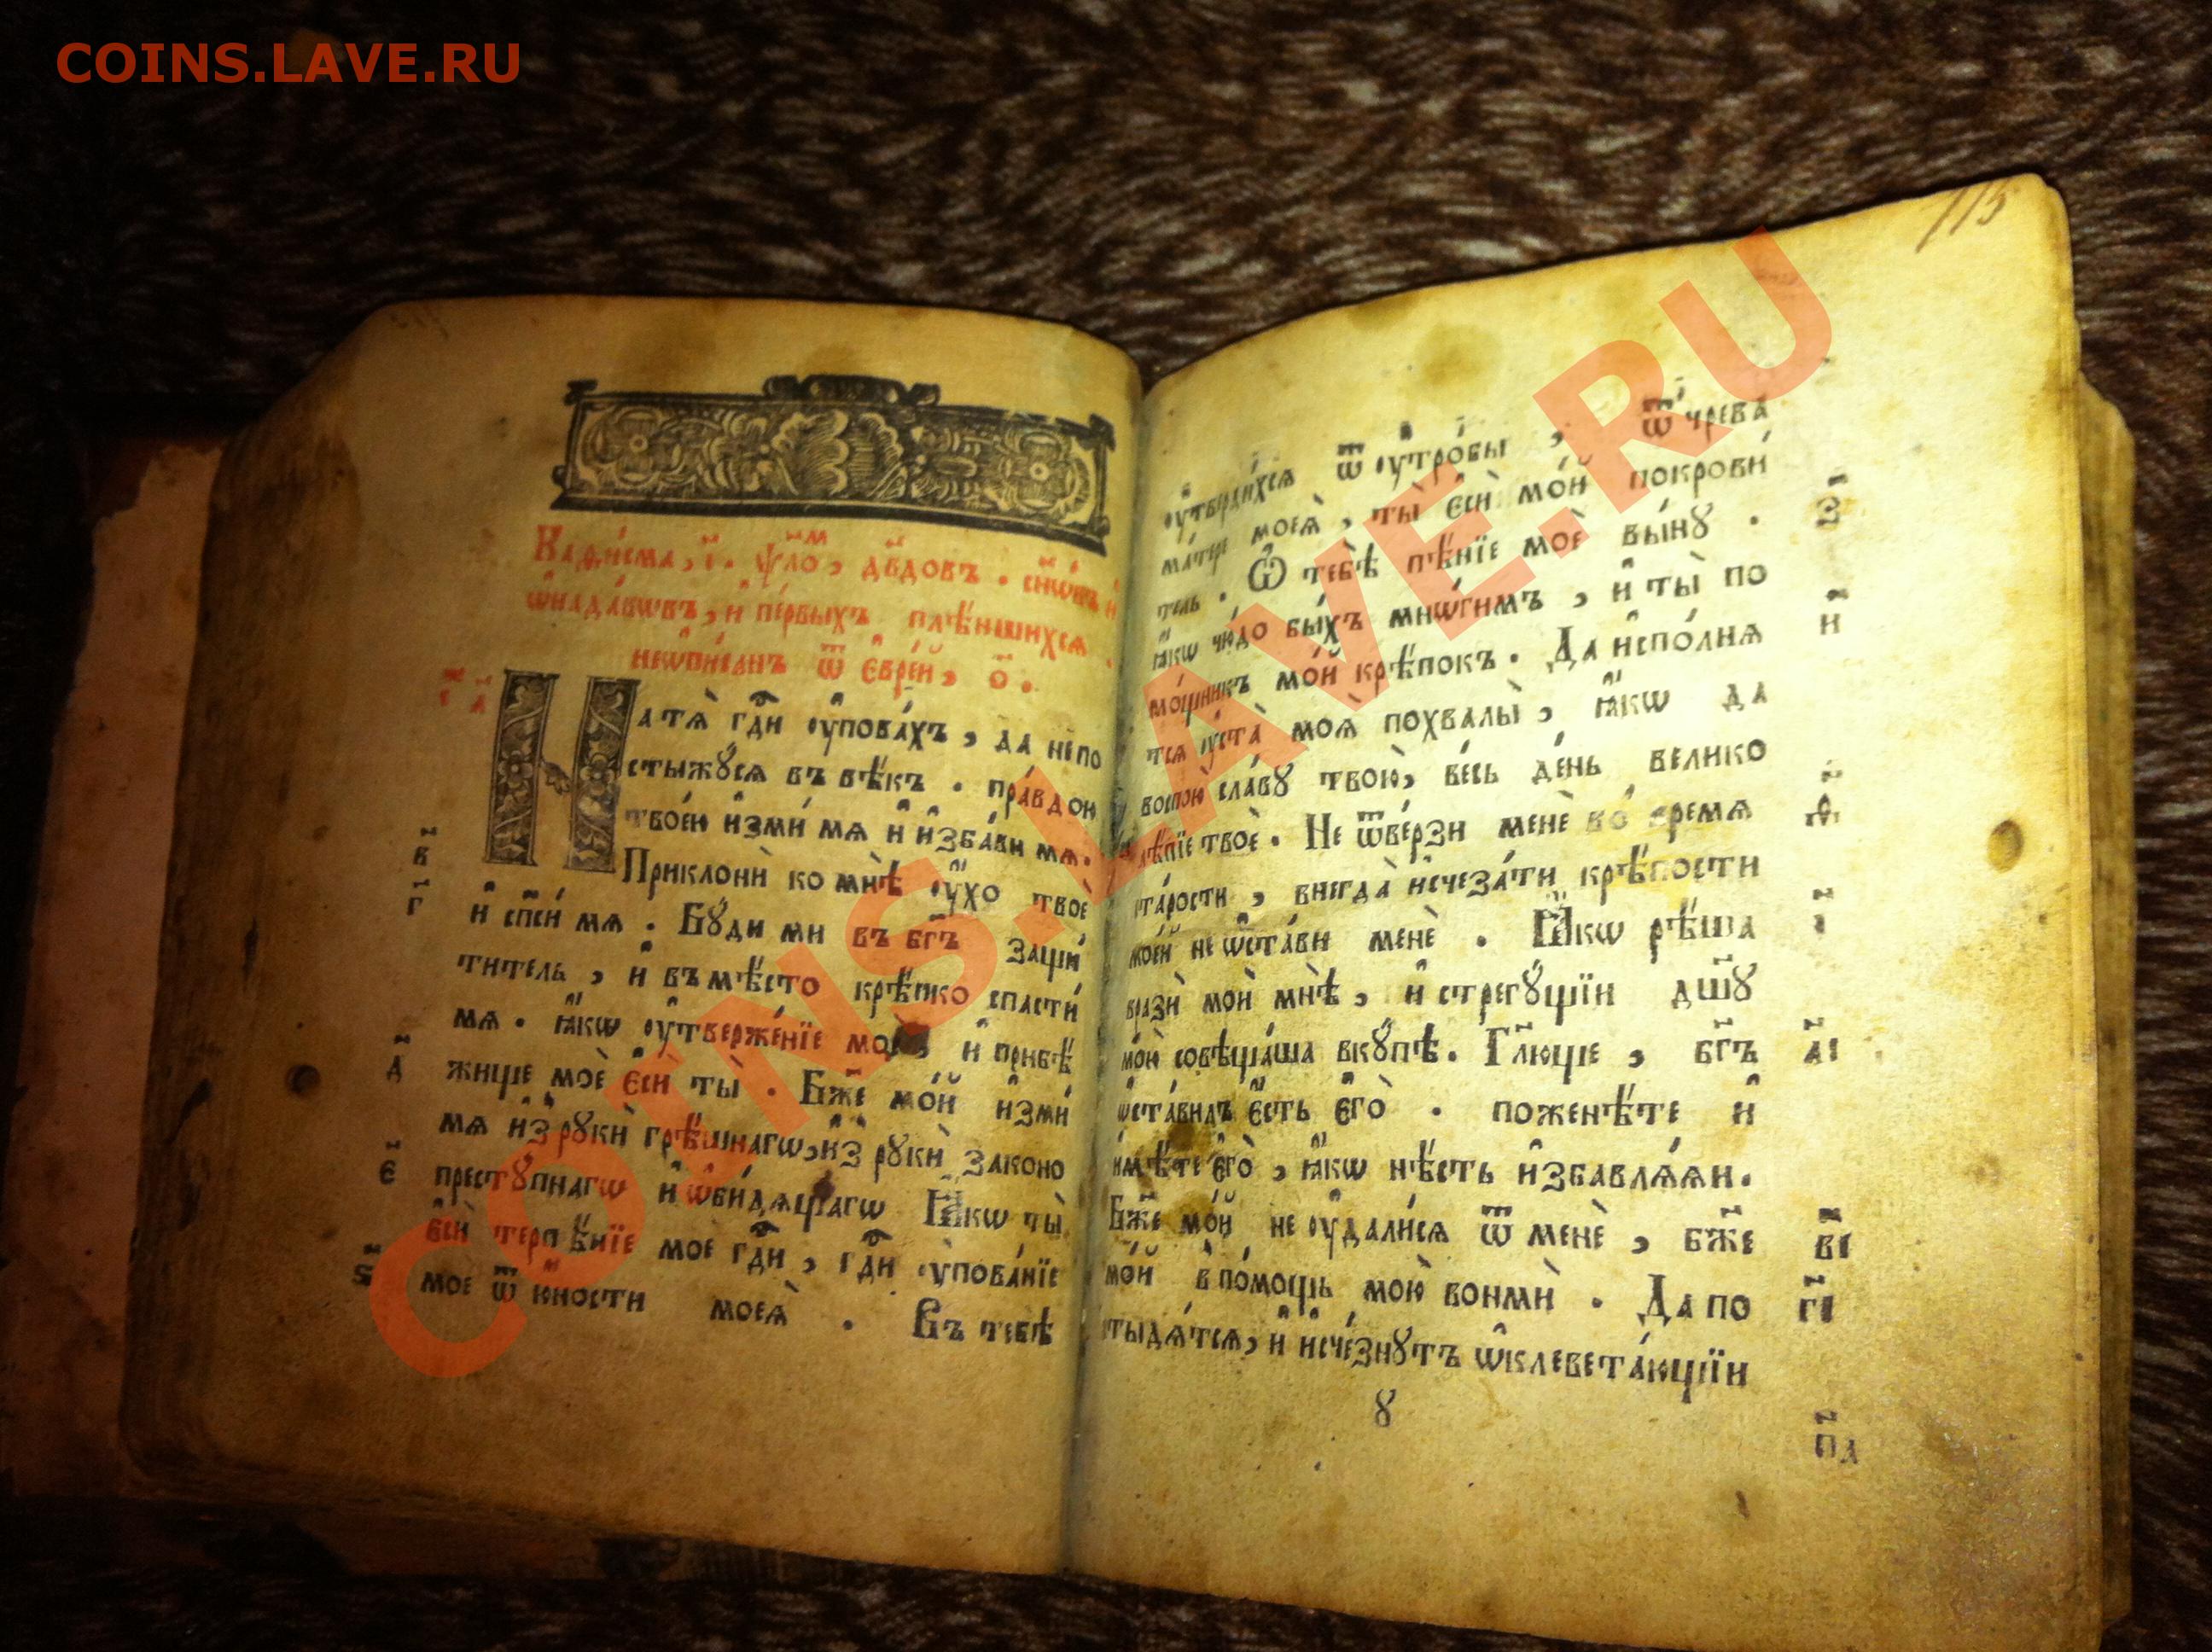 COINS.LAVE.RU
115
Каѳи́сма, і҃. ѱⷧ҇мо, дв҃довъ. сн҃ѡ́въ и҆
ѡ҆надавѡвъ, и҆ пе́рвыхъ плѣ́ншихся.
неѡпи́санъ ѿ є҆вре́й, о҃.
а҃
На тѧ̀ гдⷭ҇и ᲂу҆пова́хъ, да непо
стыжꙋ́сѧ въ вѣ́къ. пра́вдою
твое́ю и҆зми́ мѧ и҆ и҆зба́ви мѧ.
в҃
Приклонѝ ко мнѣ̀ ᲂу҆́хо твоѐ
г҃
и҆ сп҃си́ мѧ. Бꙋ́ди ми въ бг҃ъ защи́
титель, и҆ въ мѣ́сто крѣ́пко спасти́
мѧ. ꙗ҆́кѡ ᲂу҆твержє́нїе моѐ, и҆ прибѣ́
д҃
жище моѐ є҆сѝ ты̀. Бж҃е мо́й и҆зми́
мѧ и҆з рꙋкѝ грѣ́шнагѡ, и҆з рꙋкѝ законо
є҃
престꙋ́пнагѡ и҆ ѡ҆би́дѧщагѡ Ꙗ҆́кѡ ты̀
є҆сѝ терпѣ́нїе мое гдⷭ҇и, гдⷭ҇и ᲂу҆пова́нїе
ѕ҃
мое ѿ ю҆́ности моеѧ̀. Въ тебѣ̀
ᲂу҆тверди́хсѧ ѿ ᲂу҆тро́бы, ѿ чре́ва
ма́тере моеѧ̀, ты̀ є҆сѝ мо́й покрови́
тель. Ѡ҆ тебѣ̀ пѣ́нїе моѐ вы́нꙋ.
з҃
ꙗ҆́кѡ чю́до бы́хъ мнѡ́гимъ, и҆ ты̀ по
мо́щникъ мо́й крѣ́покъ. Да и҆спо́лнѧ
и҃
тсѧ ᲂу҆ста̀ моѧ̀ похвалы̀, ꙗ҆́кѡ да
воспою̀ сла́вꙋ твою̀, ве́сь де́нь велико
лѣ́пїе твоѐ. Не ѿве́рзи менѐ во́ время
ѳ҃
ста́рости, внегда̀ и҆счеза́ти крѣ́пости
мое́й не ѡ҆ста́ви менѐ. Ꙗ҆́кѡ рѣ́ша
і҃
вразѝ моѝ мнѣ̀, и҆ стрегꙋ́щїи дш҃ꙋ
мою̀ совѣща́ша вкꙋ́пѣ. Гл҃юще, бг҃ъ
а҃і
ѡ҆ста́вилъ є҆́сть є҆го̀. пожене́те и҆
и҆мѣ́те є҆го̀, ꙗ҆́кѡ нѣ́сть и҆збавлѧ́ѧи.
Бж҃е мо́й не ᲂу҆дали́сѧ ѿ менѐ, бж҃е
в҃і
мо́й в по́мощь мою̀ вонмѝ. Да по
г҃і
стыдѧ́тсѧ, и҆ и҆сче́знꙋтъ ѡ҆клевета́ющїи
ꙋ
п҃д
COINS.LAVE.RU